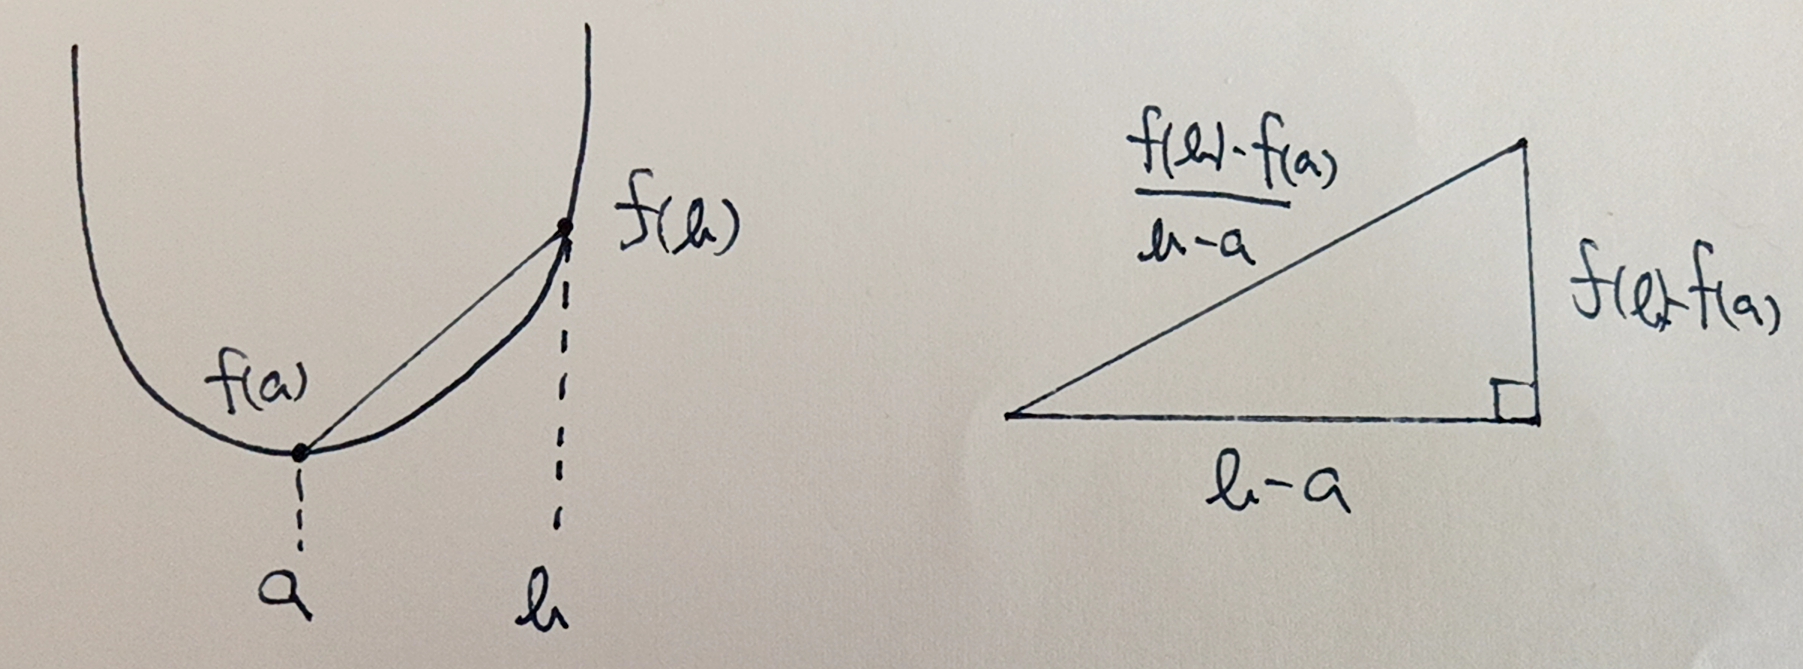 f(b)
f(a)
a
b
f(b)-f(a)
b-a
f(b)-f(a)
b-a